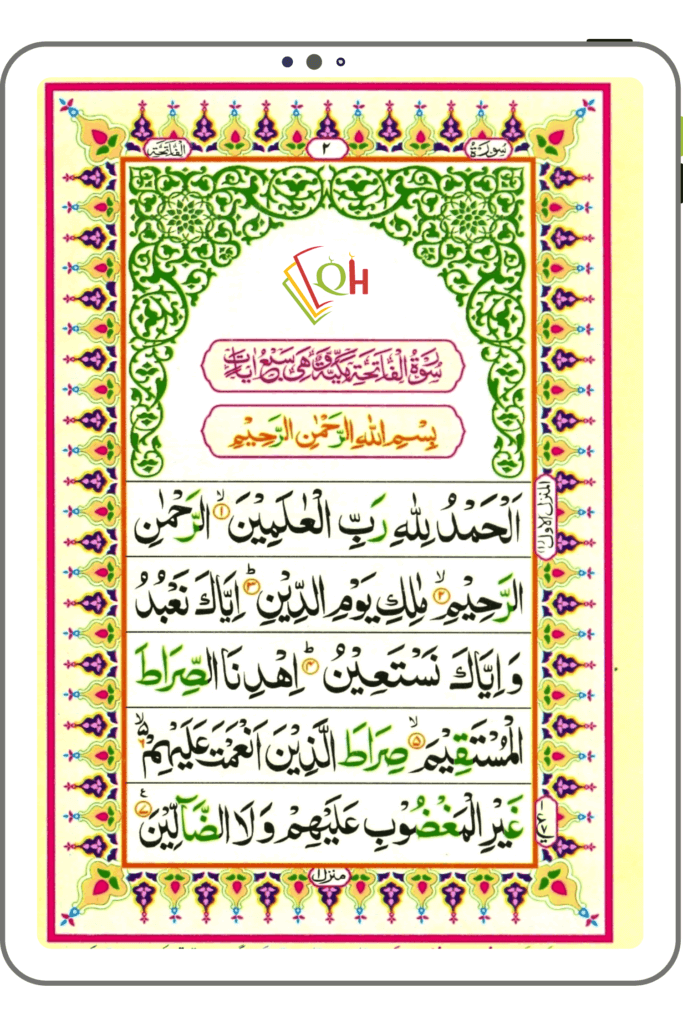 سورة ٢ الفاتحة
QH
سُوْرَةُ الْفَاتِحَةِ مَكِّيَّةٌ وَّهِيَ سَبْعُ اٰيَاتٍ
بِسْمِ اللّٰهِ الرَّحْمٰنِ الرَّحِيْمِ
المنزل الاول ١
اَلْحَمْدُ لِلّٰهِ رَبِّ الْعٰلَمِيْنَ ۙ ١ الرَّحْمٰنِ
الرَّحِيْمِ ۙ ٢ مٰلِكِ يَوْمِ الدِّيْنِ ؕ ٣ اِيَّاكَ نَعْبُدُ
وَ اِيَّاكَ نَسْتَعِيْنُ ؕ ٤ اِهْدِنَا الصِّرَاطَ
الْمُسْتَقِيْمَ ۙ ٥ صِرَاطَ الَّذِيْنَ اَنْعَمْتَ عَلَيْهِمْ ۙ ٦
غَيْرِ الْمَغْضُوْبِ عَلَيْهِمْ وَ لَا الضَّآلِّيْنَ ٧
منزل ١